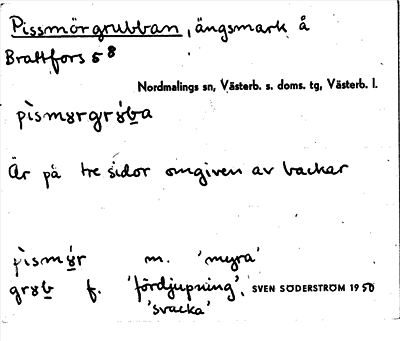 Pissmörgrubban, ängsmark å
Brattfors 5 8
Nordmalings sn, Västerb. s. doms. tg, Västerb. l.
Är på tre sidor omgiven av backar
m. 'myra'
f. 'fördjupning',
SVEN SÖDERSTRÖM 1950
'svacka'